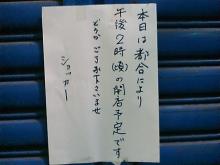 本日は都合により
午後2時(頃)の開店予定です
どうか ご了承下さいませ
ショッカー